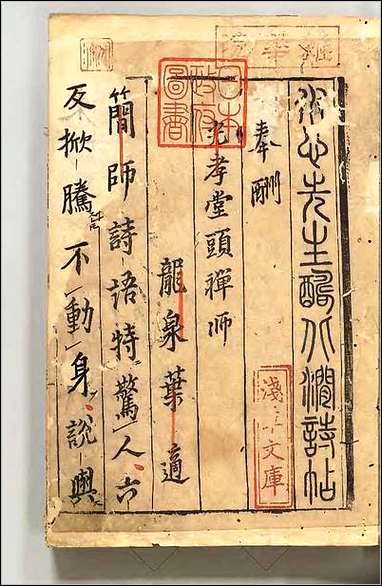 水心先生酬北磵詩帖
奉酬
光孝堂頭禪師
龍泉葉適
簡師詩語特驚人、六
反掀騰不動身、說與
日本
政府
圖書
淺草文庫